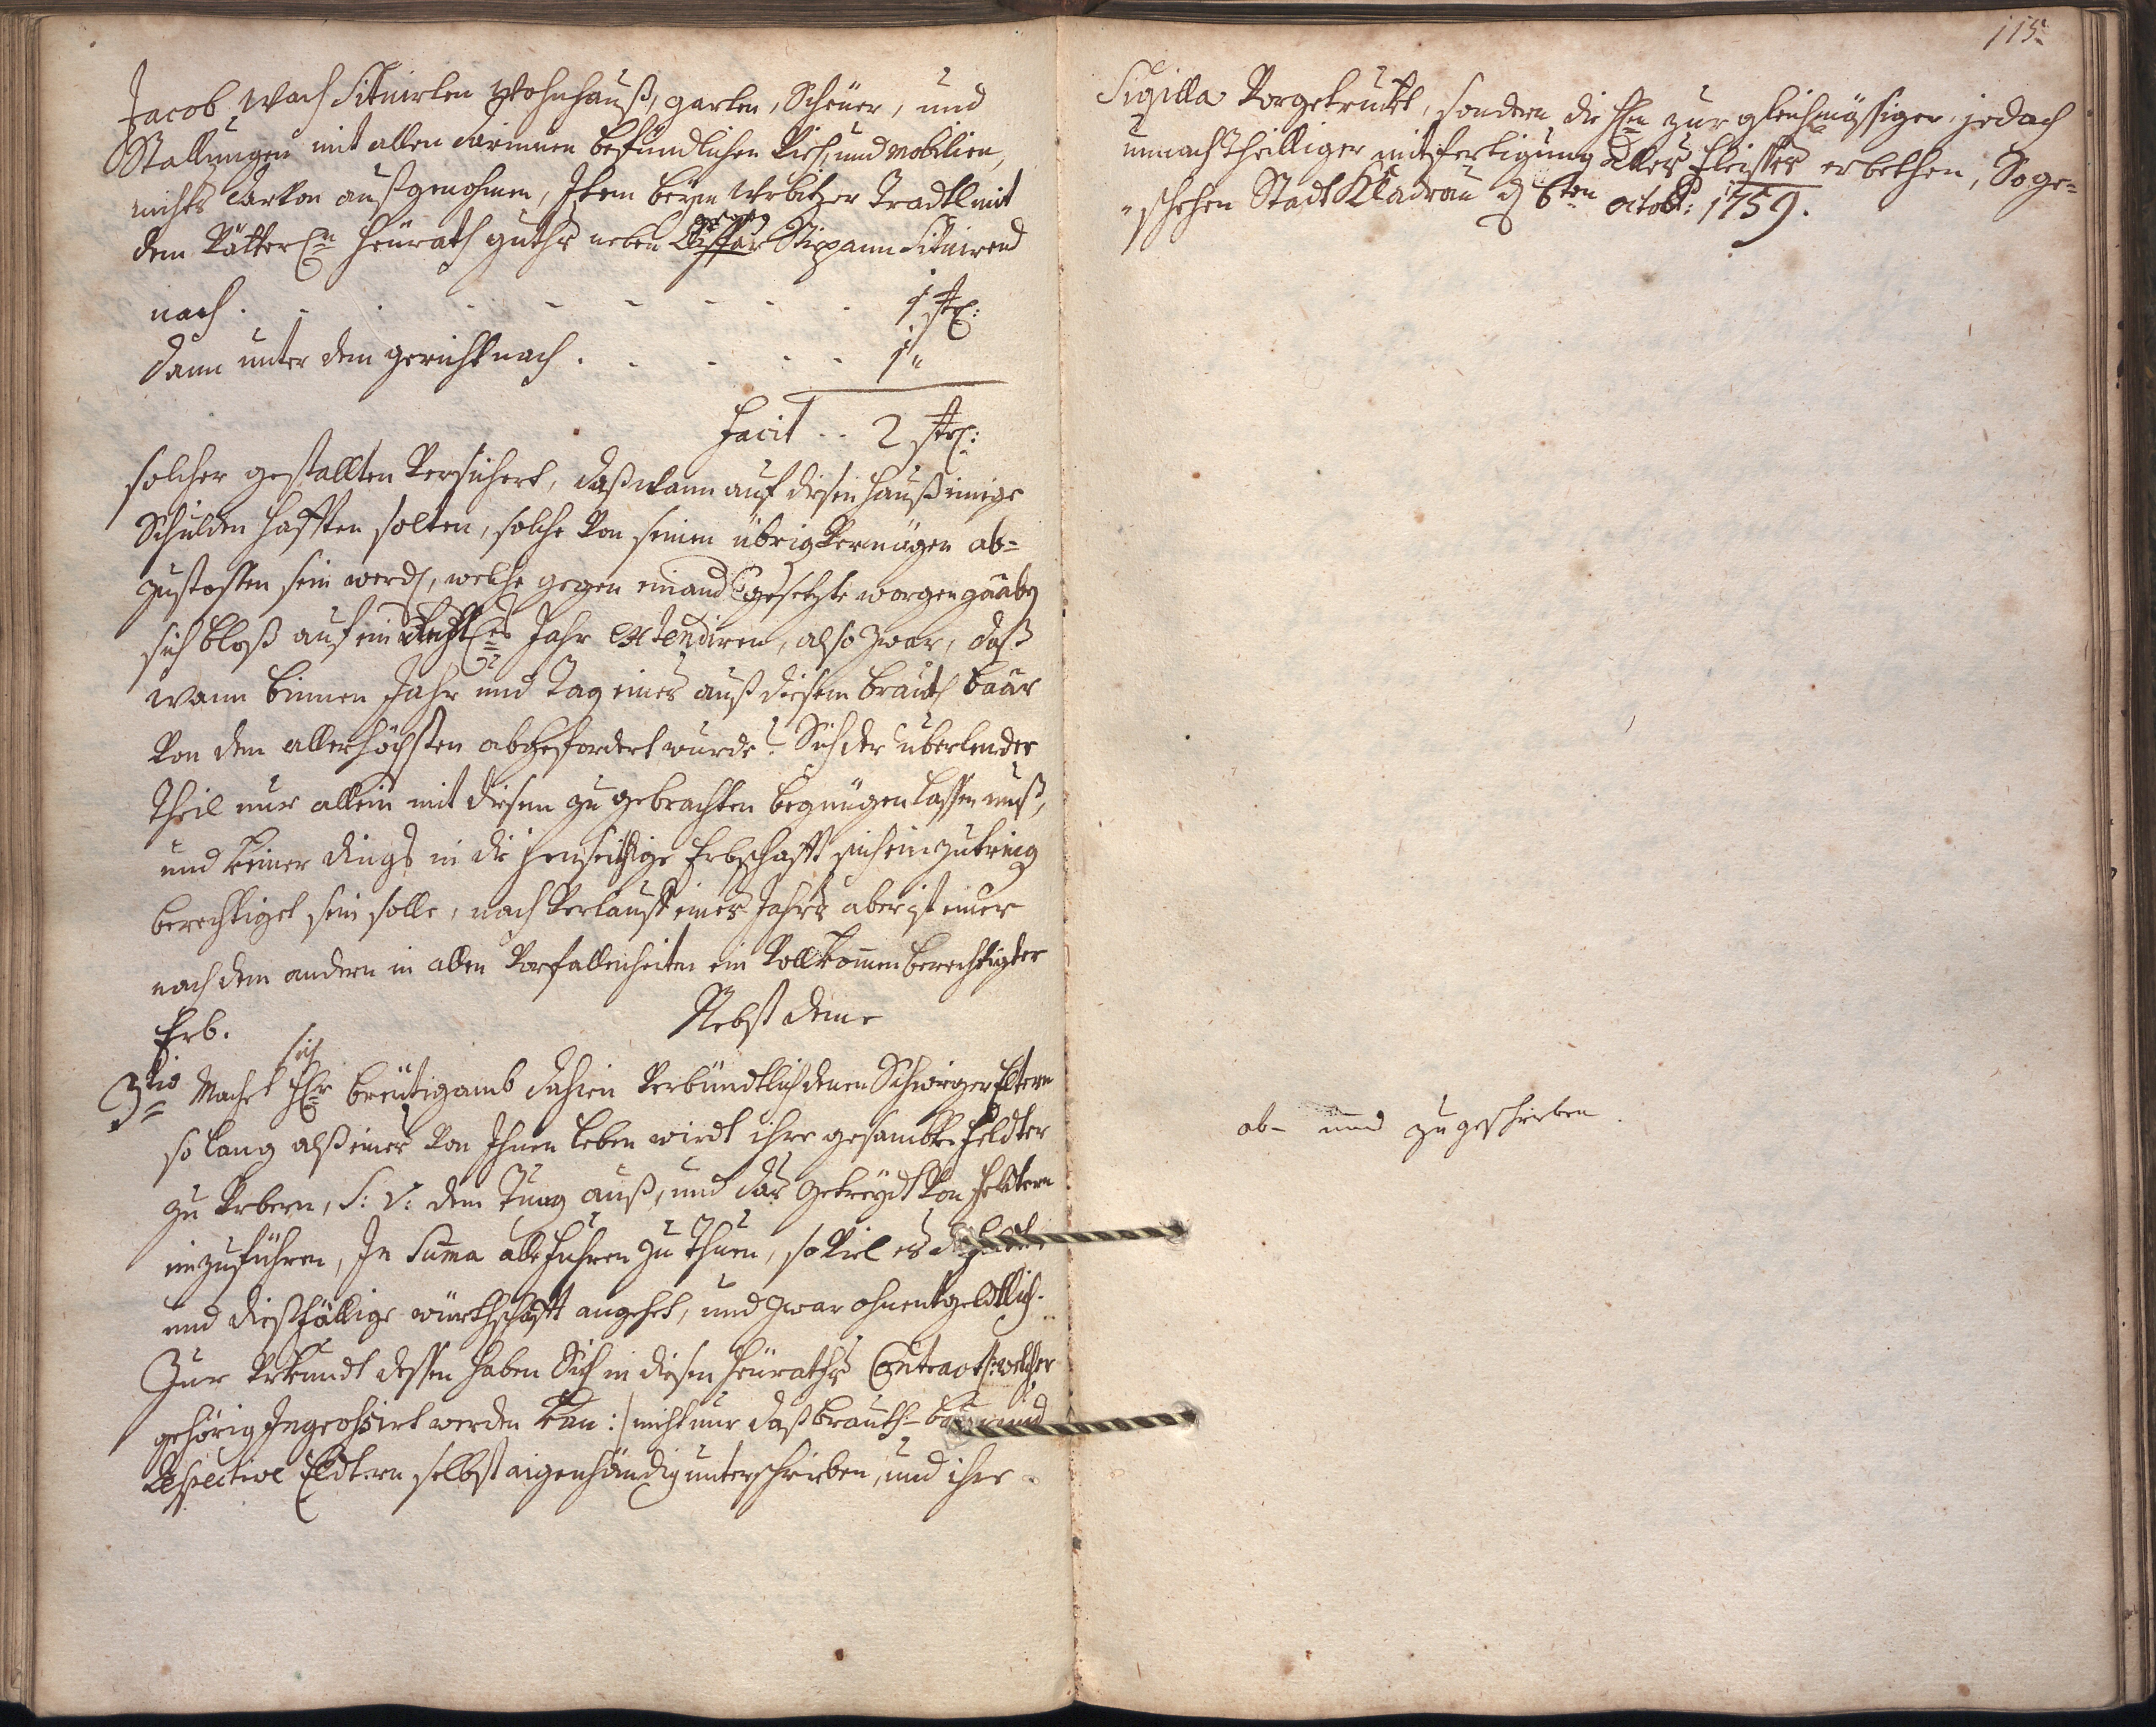 Jacob Wach Situirten Wohnhauß, garten, Scheüer, und
Stallungen mit allen darinnen befündlichen Vieh, und mobilien,
nichts darvon außgenohmen, Item beÿm Wrbitzer Tradtl mit
dem Vätterln Heürath guths neben Stipann Situirend
nach . - . - - - - - - . 1 str:
Dann unter dem gericht nach . . - - - - 1 "
Facit .. 2 str:
solcher gestallten Versichert, daß wann auf diesen hauß einige
Schulden hafften solten, solche von seinen übrig Vermögen ab=
zustossen sein werd, welche gegen einand gesetzte morgengaab
sich bloß auf ein Jahr extendiren, also zwar, daß
wann binnen Jahr und Tag eines auß diesem brauth baar
Von dem allerhöchsten abgefordert wurde? Sich der überlender
Theil nur allein mit diesem zu gebrachten begnügen lassen muß,
und keiner dings in die jenseithige Erbschafft sich einzutring
berechtiget sein solle, nach Verlauff eines Jahrs aber ist einer
nach dem andern in allen Vorfallenheiten ein Vollkom̄en berechtigter
Erb. Nebst deme
3tio Machet sich Hr breütigamb dahien Verbündtlich denen Schwiger Eltern
so lang alß eines Von Ihnen leben wirdt ihre gesambte Feldter
zu Arbern, S: V: dem Tung auß, und das getreÿdt Von Feldtern
einzuführen, In Suma alle Fuhren zu Thuen, so Viel es
und dießfällige würthschafft angehet, und zwar ohnentgeldtlich.
Zur Urkundt dessen haben Sich in diesen Heüraths Contract /: welcher
gehörig Ingrossirt werden kan :/ nicht nur daß brauth- und
Respective Eldtern selbst aigenhändig unterschrieben, und ihre
115
Sigilla Vorgetruckt, sondern die Hn zur gleichmässiger, jedoch
unnachtheilliger mitsfertigung alles Fleisses erbethen, So ge=
"schehen Stadt Kladrau d 6ten octob: 1759.
ab- und zugeschrieben